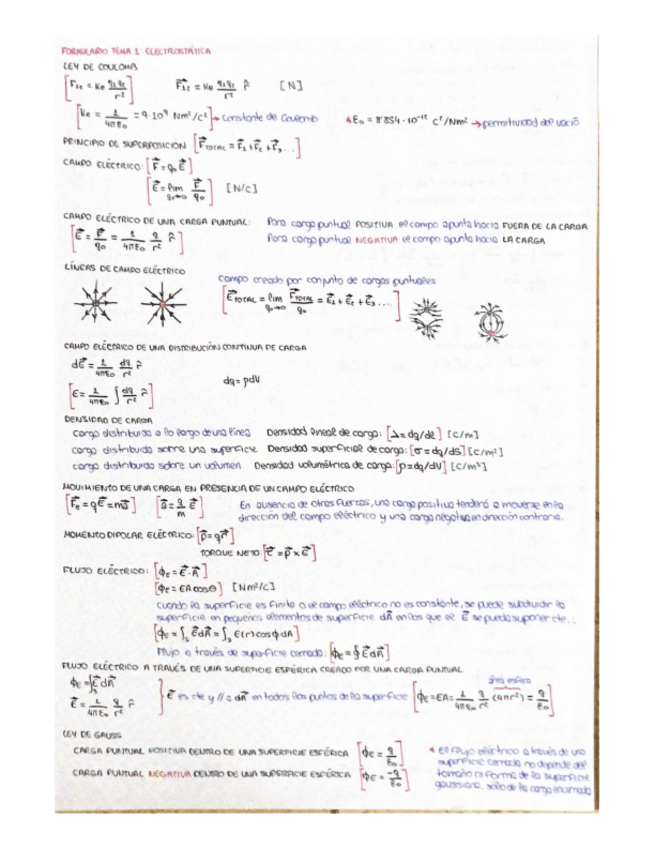 FORMULARIO TEMA 1: ELECTROSTÁTICA
LEY DE COULOMB
[F₁₂ = Ke q₁q₂/r²] F⃗₁₂ = Ke q₁q₂/r² r̂ [N]
[Ke = 1/4πε₀ = 9·10⁹ Nm²/c²] → Constante de Coulomb * ε₀ = 8'854·10⁻¹² C²/Nm² → permitividad del vacío
PRINCIPIO DE SUPERPOSICIÓN [F⃗TOTAL = F⃗₁+F⃗₂+F⃗₃...]
CAMPO ELÉCTRICO: [F⃗ = q₀E⃗]
[E⃗ = lim q₀→0 F⃗/q₀] [N/C]
CAMPO ELÉCTRICO DE UNA CARGA PUNTUAL: Para carga puntual POSITIVA el campo apunta hacia FUERA DE LA CARGA
[E⃗ = F⃗/q₀ = 1/4πε₀ q/r² r̂] Para carga puntual NEGATIVA el campo apunta hacia LA CARGA
LÍNEAS DE CAMPO ELÉCTRICO
Campo creado por conjunto de cargas puntuales
[E⃗TOTAL = lim q₀→0 F⃗TOTAL/q₀ = E⃗₁+E⃗₂+E⃗₃....]
CAMPO ELÉCTRICO DE UNA DISTRIBUCIÓN CONTINUA DE CARGA
dE⃗ = 1/4πε₀ dq/r² r̂
dq = ρdV
[E = 1/4πε₀ ∫ dq/r² r̂]
DENSIDAD DE CARGA
carga distribuida a lo largo de una línea Densidad lineal de carga: [λ = dq/dl] [C/m]
carga distribuida sobre una superficie Densidad superficial de carga: [σ = dq/dS] [C/m²]
carga distribuida sobre un volumen Densidad volumétrica de carga: [ρ = dq/dV] [C/m³]
MOVIMIENTO DE UNA CARGA EN PRESENCIA DE UN CAMPO ELÉCTRICO
[F⃗e = qE⃗ = ma⃗] [a⃗ = q/m E⃗] En ausencia de otras fuerzas, una carga positiva tenderá a moverse en la
dirección del campo eléctrico y una carga negativa en dirección contraria.
MOMENTO DIPOLAR ELÉCTRICO: [p⃗ = qr⃗]
TORQUE NETO: [τ⃗ = p⃗ × E⃗]
FLUJO ELÉCTRICO: [ϕE = E⃗·A⃗]
[ϕE = EA cosθ] [Nm²/C]
Cuando la superficie es finita o el campo eléctrico no es constante, se puede subdividir la
superficie en pequeños elementos de superficie dA⃗ en los que el E⃗ se pueda suponer cte..
[ϕE = ∫s E⃗dA⃗ = ∫s E(r)cosϕdA]
Flujo a través de superficie cerrada: [ϕE = ∮E⃗dA⃗]
FLUJO ELÉCTRICO A TRAVÉS DE UNA SUPERFICIE ESFÉRICA CREADO POR UNA CARGA PUNTUAL
área esfera
ϕE = ∫s E⃗dA⃗
E⃗ = 1/4πε₀ q/r² r̂ } E⃗ es cte y // a dA⃗ en todos los puntos de la superficie [ϕE = EA = 1/4πε₀ q/r² (4πr²) = q/ε₀]
LEY DE GAUSS
CARGA PUNTUAL POSITIVA DENTRO DE UNA SUPERFICIE ESFÉRICA [ϕE = q/ε₀]
CARGA PUNTUAL NEGATIVA DENTRO DE UNA SUPERFICIE ESFÉRICA [ϕE = -q/ε₀]
* El flujo eléctrico a través de una
superficie cerrada no depende del
tamaño ni forma de la superficie
gaussiana, sólo de la carga encerrada